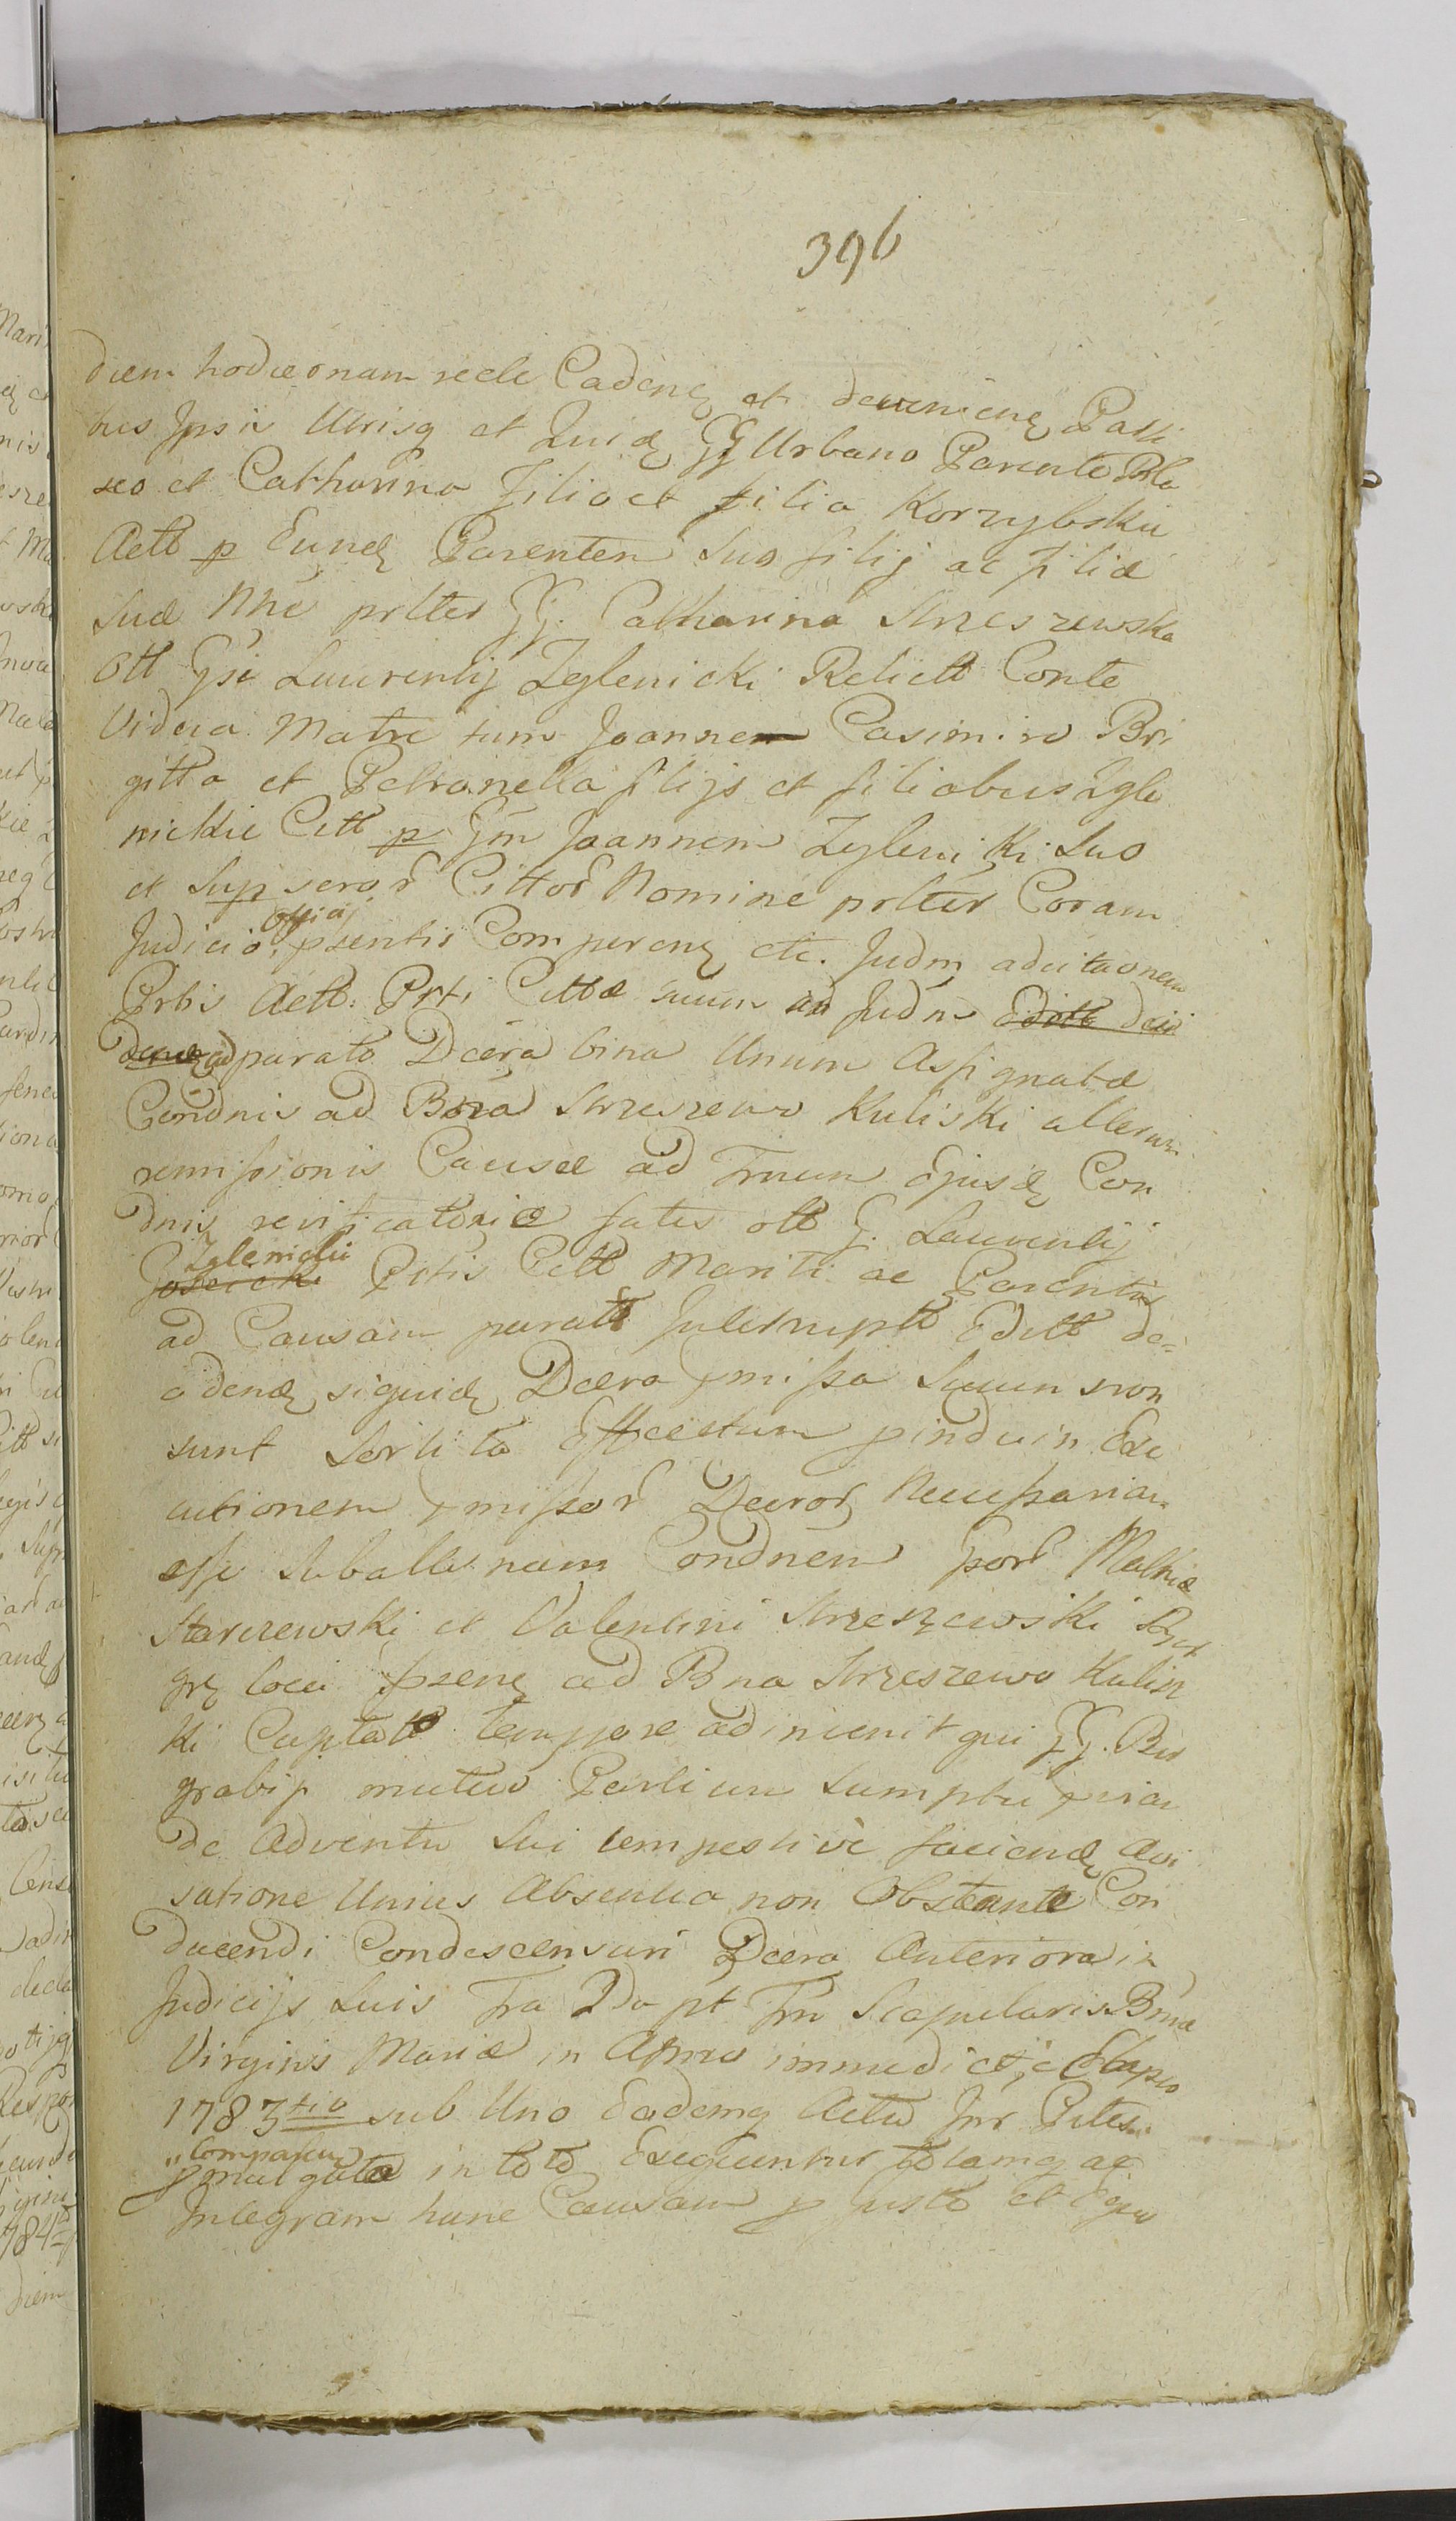 396
diem hodiernam recte Cadenę et devenienę Parti
bus Ipsis Utrisq et Quidę GG Urbano Parente Bla
seo et Catharina Filio et filia Korzybskie
Actt p Eundę Parentem suo filij ac filiæ
suæ Nne prltes GG. Catharina Strzeszewska
Ott Gsi Laurentij Zglenicki Relictt Conte
Vidua Matre tum Joanne Casimiro Bri
gitta et Petronella filijs et filiabus Zgle
nickie Citt p Gm Joannem Zglenicki suo
et Supseror Cittor Nomine prltes Coram
Judicio Officij psentis Comperenę etc. Judm ad citaonem
Prtis Actt. Prti Cittæ suum ad Judm Editt dei
denę ad parata Dcera bina Unum Assignatæ
Condnis ad Bona Strzeszewo Kuliski alterum
remissionis Causæ ad Tmum Ejusdę Con
dnis verificatoriæ fatis ott G. Laurentij
Gosicki Zglenicki Prtis Citt Mariti ac Parentis
ad Causam paratt Interruptt Editt de
cidendę siquidę Dcera pmissa suum non
sunt sortita Effectum pinde in Exe
cutionem pmissor Dcror Necessariam
esse subalternam Condnem Gsor Mathiæ
Starczewski et Valentini Strzeszewski
grę loci psenę ad Bna Strzeszewo Kulisz
ki Captatt tempore adinvenit qui GG. Bur
grabij mutuo Partium sumptu pvia
de Adventu sui tempestive faciendę avi
satione Unius Absentia non Obstante Con
ducendi Condescensuri Dcera Anteriora in
Judicijs suis Fra 2da pt Fm Scapularis Bmæ
Virginis Mariæ in Anno immediate Elapso
1783tio sub Uno Eodemq Actu Inr Prtes
Comparen pmulgata in toto Exequuntur totamq ac
Integram hanc Causam p justo et Equo